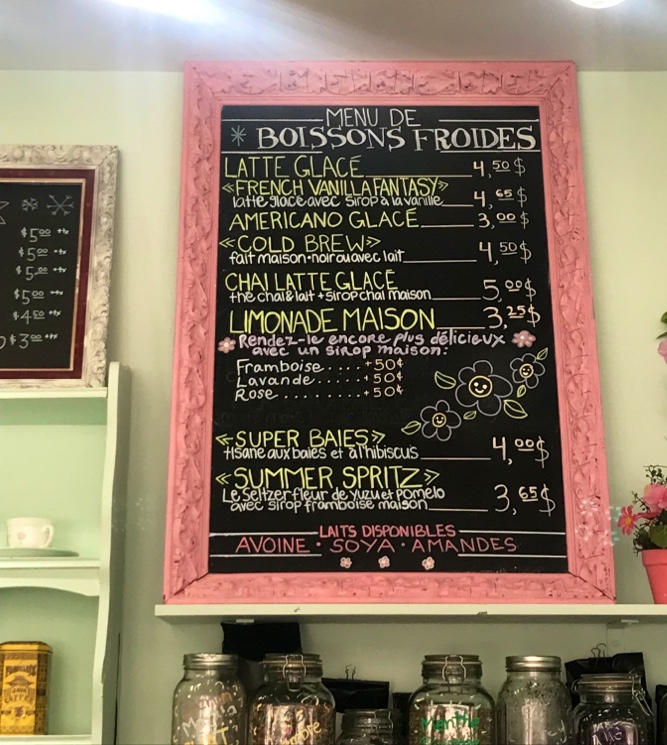 MENU DE
BOISSONS FROIDES
LATTE GLACÉ 4,50$
«FRENCH VANILLA FANTASY»
latte glacé avec sirop à la vanille 4,65$
AMERICANO GLACÉ 3,00$
«COLD BREW»
fait maison • noir ou avec lait 4,50$
CHAI LATTE GLACÉ
thé chai & lait + sirop chai maison 5,00$
LIMONADE MAISON 3,25$
Rendez-le encore plus délicieux
avec un sirop maison:
Framboise.....+50¢
Lavande.....+50¢
Rose........+50¢
«SUPER BAIES»
tisane aux baies et à l'hibiscus 4,00$
«SUMMER SPRITZ»
Le Seltzer fleur de Yuzu et Pomelo
avec sirop framboise maison 3,65$
LAITS DISPONIBLES
AVOINE • SOYA • AMANDES
$5.00 +tx
$5.00 +tx
$5.00 +tx
$5.00 +tx
$4.50 +tx
$3.00 +tx
Menthe